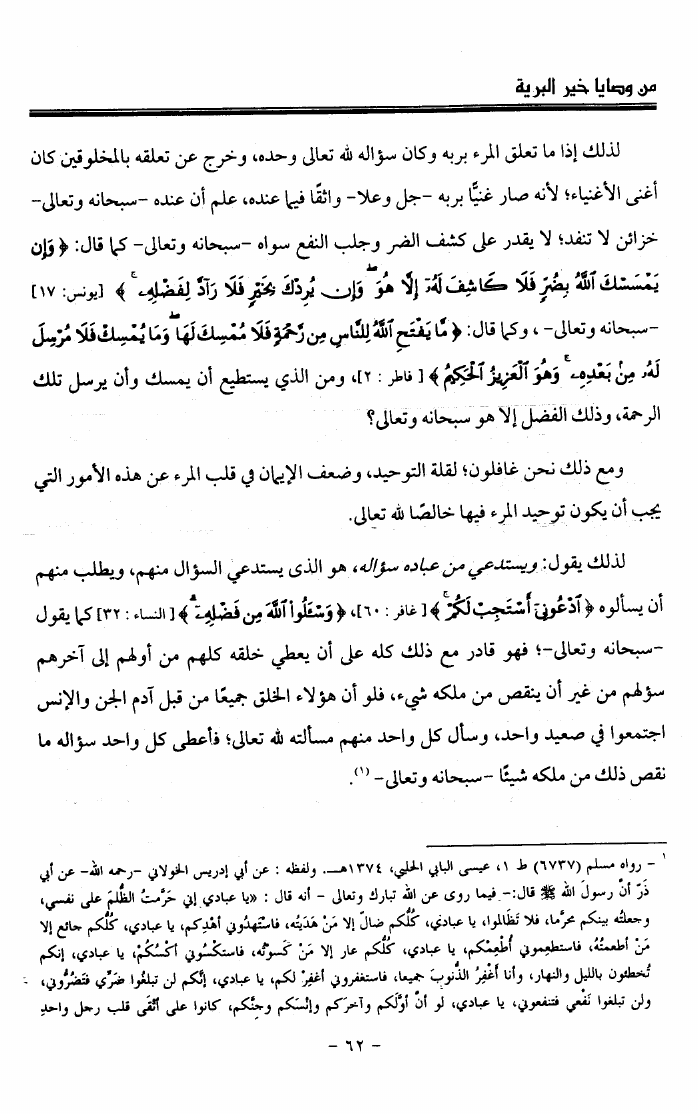 من وصايا خير البرية
لذلك إذا ما تعلق المرء بربه وكان سؤاله لله تعالى وحده، وخرج عن تعلقه بالمخلوقين كان
أغنى الأغنياء؛ لأنه صار غنيًّا بربه -جل وعلا- واثقًا فيما عنده، علم أن عنده -سبحانه وتعالى-
خزائن لا تنفد؛ لا يقدر على كشف الضر وجلب النفع سواه -سبحانه وتعالى- كما قال: ﴿ وَإِن
يَمْسَسْكَ ٱللَّهُ بِضُرٍّ فَلَا كَاشِفَ لَهُۥٓ إِلَّا هُوَ ۖ وَإِن يُرِدْكَ بِخَيْرٍ فَلَا رَآدَّ لِفَضْلِهِۦ ۚ ﴾ [يونس: ١٧]
-سبحانه وتعالى- ، وكما قال: ﴿ مَّا يَفْتَحِ ٱللَّهُ لِلنَّاسِ مِن رَّحْمَةٍ فَلَا مُمْسِكَ لَهَا ۖ وَمَا يُمْسِكْ فَلَا مُرْسِلَ
لَهُۥ مِنۢ بَعْدِهِۦ ۚ وَهُوَ ٱلْعَزِيزُ ٱلْحَكِيمُ ﴾ [ فاطر : ٢]، ومن الذي يستطيع أن يمسك وأن يرسل تلك
الرحمة، وذلك الفضل إلا هو سبحانه وتعالى؟
ومع ذلك نحن غافلون؛ لقلة التوحيد، وضعف الإيمان في قلب المرء عن هذه الأمور التي
يجب أن يكون توحيد المرء فيها خالصًا لله تعالى.
لذلك يقول: ويستدعي من عباده سؤاله، هو الذى يستدعي السؤال منهم، ويطلب منهم
أن يسألوه ﴿ ٱدْعُونِىٓ أَسْتَجِبْ لَكُمْ ۚ ﴾ [ غافر : ٦٠]، ﴿ وَسْـَٔلُوا۟ ٱللَّهَ مِن فَضْلِهِۦٓ ۗ ﴾ [ النساء : ٣٢] كما يقول
-سبحانه وتعالى-؛ فهو قادر مع ذلك كله على أن يعطي خلقه كلهم من أولهم إلى آخرهم
سؤلهم من غير أن ينقص من ملكه شيء، فلو أن هؤلاء الخلق جميعًا من قبل آدم الجن والإنس
اجتمعوا في صعيد واحد، وسأل كل واحد منهم مسألته لله تعالى؛ فأعطى كل واحد سؤاله ما
نقص ذلك من ملكه شيئًا -سبحانه وتعالى- (١).
١ - رواه مسلم (٦٧٣٧) ط ١، عيسى البابي الحلبي، ١٣٧٤هـ. ولفظه : عن أبي إدريس الخولاني -رحمه الله- عن أبي
ذَرّ أنَّ رسولَ الله ﷺ قال:- فيما روى عن الله تبارك وتعالى - أنه قال : «يا عبادي إني حَرَّمتُ الظُّلمَ على نفسي،
وجعلتُه بينكم محرَّما، فلا تَظالموا، يا عبادي، كُلُّكم ضالّ إلا مَنْ هَدَيتُه، فاستَهدُوني أهْدِكم، يا عبادي، كُلُّكم جائع إلا
مَنْ أطعمتُهُ، فاستطعِموني أُطْعِمْكم، يا عبادي، كُلُّكم عار إلا مَنْ كَسوْتُه، فاستكْسُوني أكْسُكُمْ، يا عبادي، إنكم
تُخطئون بالليل والنهار، وأنا أَغْفِرُ الذُّنوبَ جميعا، فاستغفروني أغفِرْ لكم، يا عبادي، إنَّكم لن تبلغُوا ضَرِّي فتَضُرُّوني،
ولن تبلغوا نَفْعي فتنفعوني، يا عبادي، لو أنَّ أوَّلَكم وآخرَكم وإنْسَكم وجنَّكم، كانوا على أتْقَى قلب رجل واحدٍ
- ٦٢ -